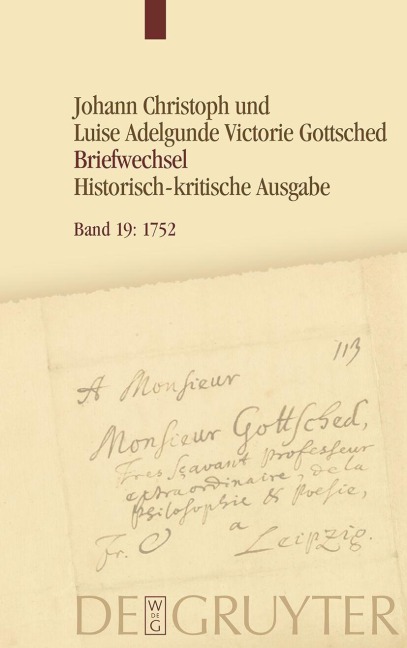 Johann Christoph und
Luise Adelgunde Victorie Gottsched
Briefwechsel
Historisch-kritische Ausgabe
Band 19: 1752
113
A Monsieur
Monsieur Gottsched,
Tres Sçavant Professeur
extraordinaire, de la
Philosophie & Poesie,
a
Fr. Leipzig.
DE GRUYTER
W
DE
G